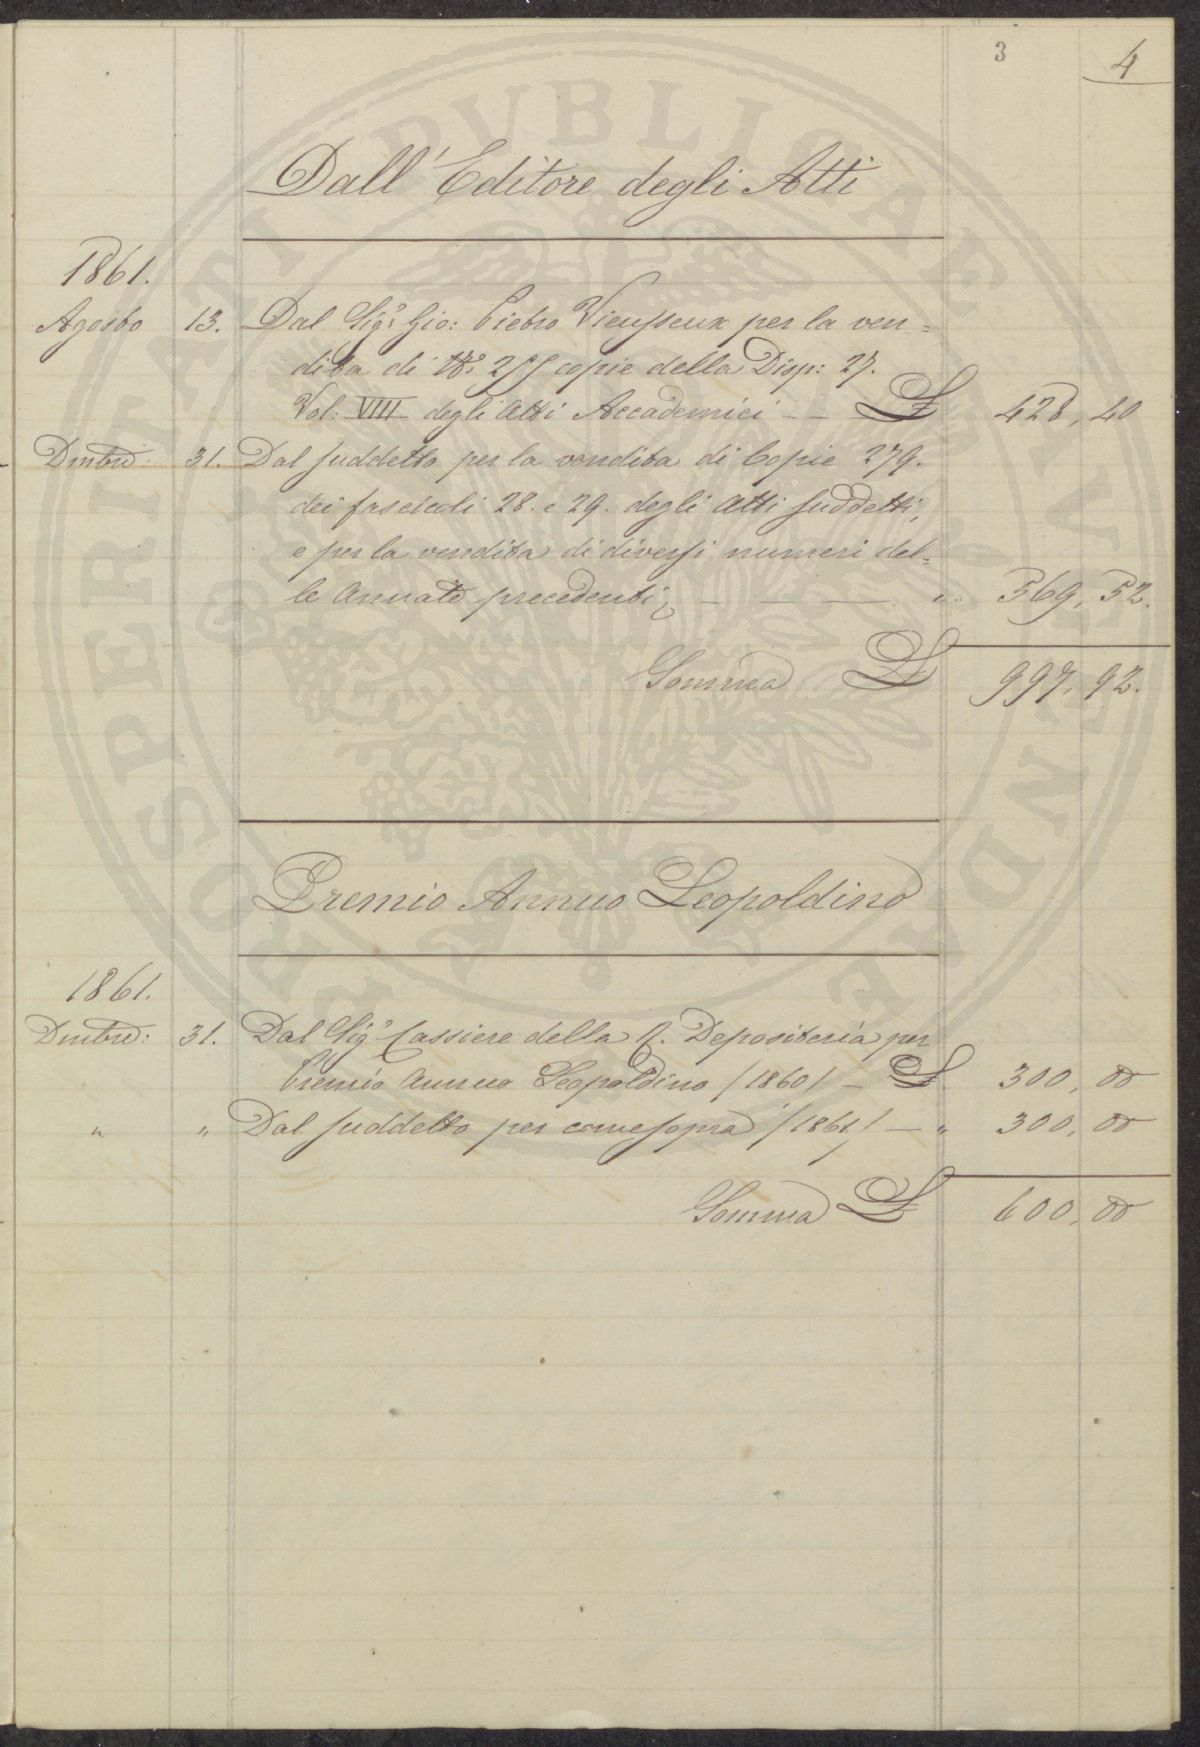 3
4
Dall' Editore degli Atti
1861.
Agosto 13. Dal Sigr Gio: Pietro Vieusseux per la ven=
dita di No 255 copie della Disp: 27.
Vol: VIII degli Atti Accademici -- £ 428, 40
Dmbre: 31. Dal suddetto per la vendita di Copie 279.
dei fascicoli 28. e 29. degli Atti suddetti,
e per la vendita di diversi numeri del=
le Annate precedenti; — — „ 569, 52.
Somma £ 997, 92.
Premio Annuo Leopoldino
1861.
Dmbre: 31. Dal Sigr Cassiere della R. Depositeria per
Premio Annuo Leopoldino /1860/ — £ 300, 00
„ „ Dal suddetto per come sopra /1861/ — „ 300, 00
Somma £ 600, 00
PROSPERITATI PUBLICAE AUGENDAE